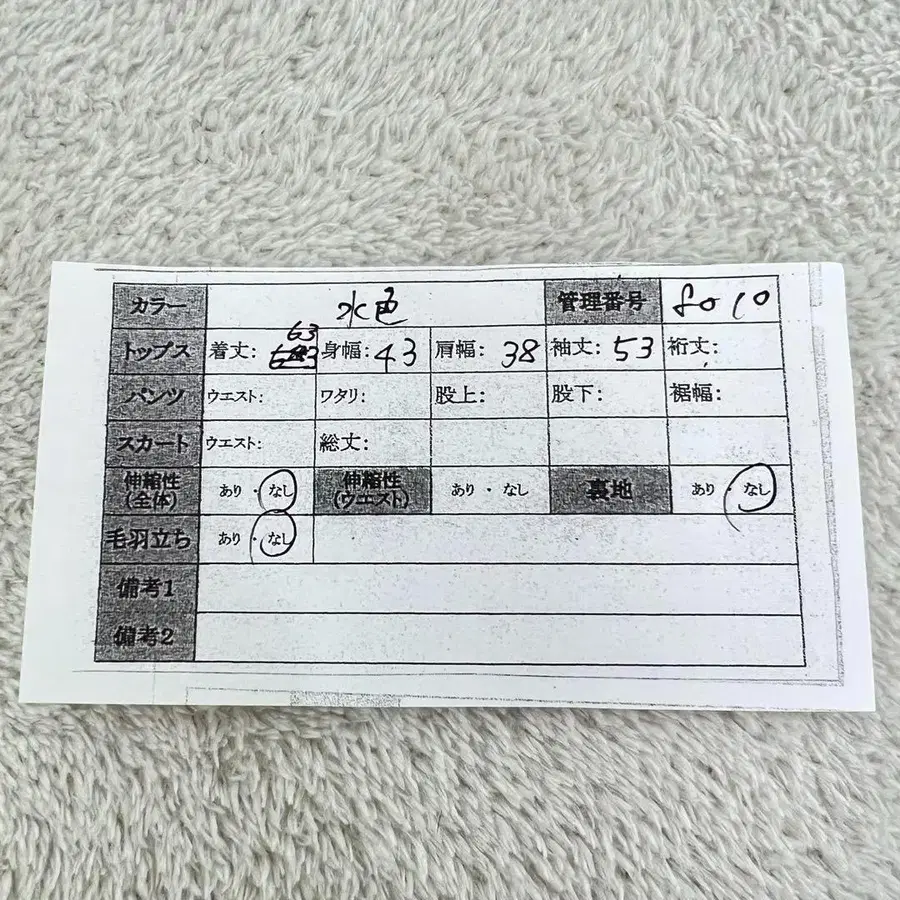 カラー 水色 管理番号 8010
63
トップス 着丈: 身幅: 43 肩幅: 38 袖丈: 53 裄丈:
パンツ ウエスト: ワタリ: 股上: 股下: 裾幅:
スカート ウエスト: 総丈:
伸縮性(全体) あり・なし 伸縮性(ウエスト) あり・なし 裏地 あり・なし
毛羽立ち あり・なし
備考1
備考2